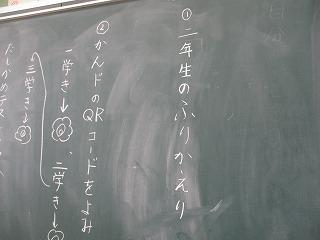 ①二年生のふりかえり
②かんドのQRコードをよみ
一学き→Q、二学き→Q
三学き→Q
たしかめテス